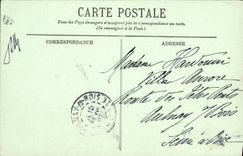 CARTE POSTALE
Tous les Pays étrangers n'acceptent pas la Correspondance au recto.
(Se renseigner à la Poste).
CORRESPONDANCE
ADRESSE
Madame
Villa Aurore
Route des Petits Ponts
Aulnay s/ Bois
Seine & Oise